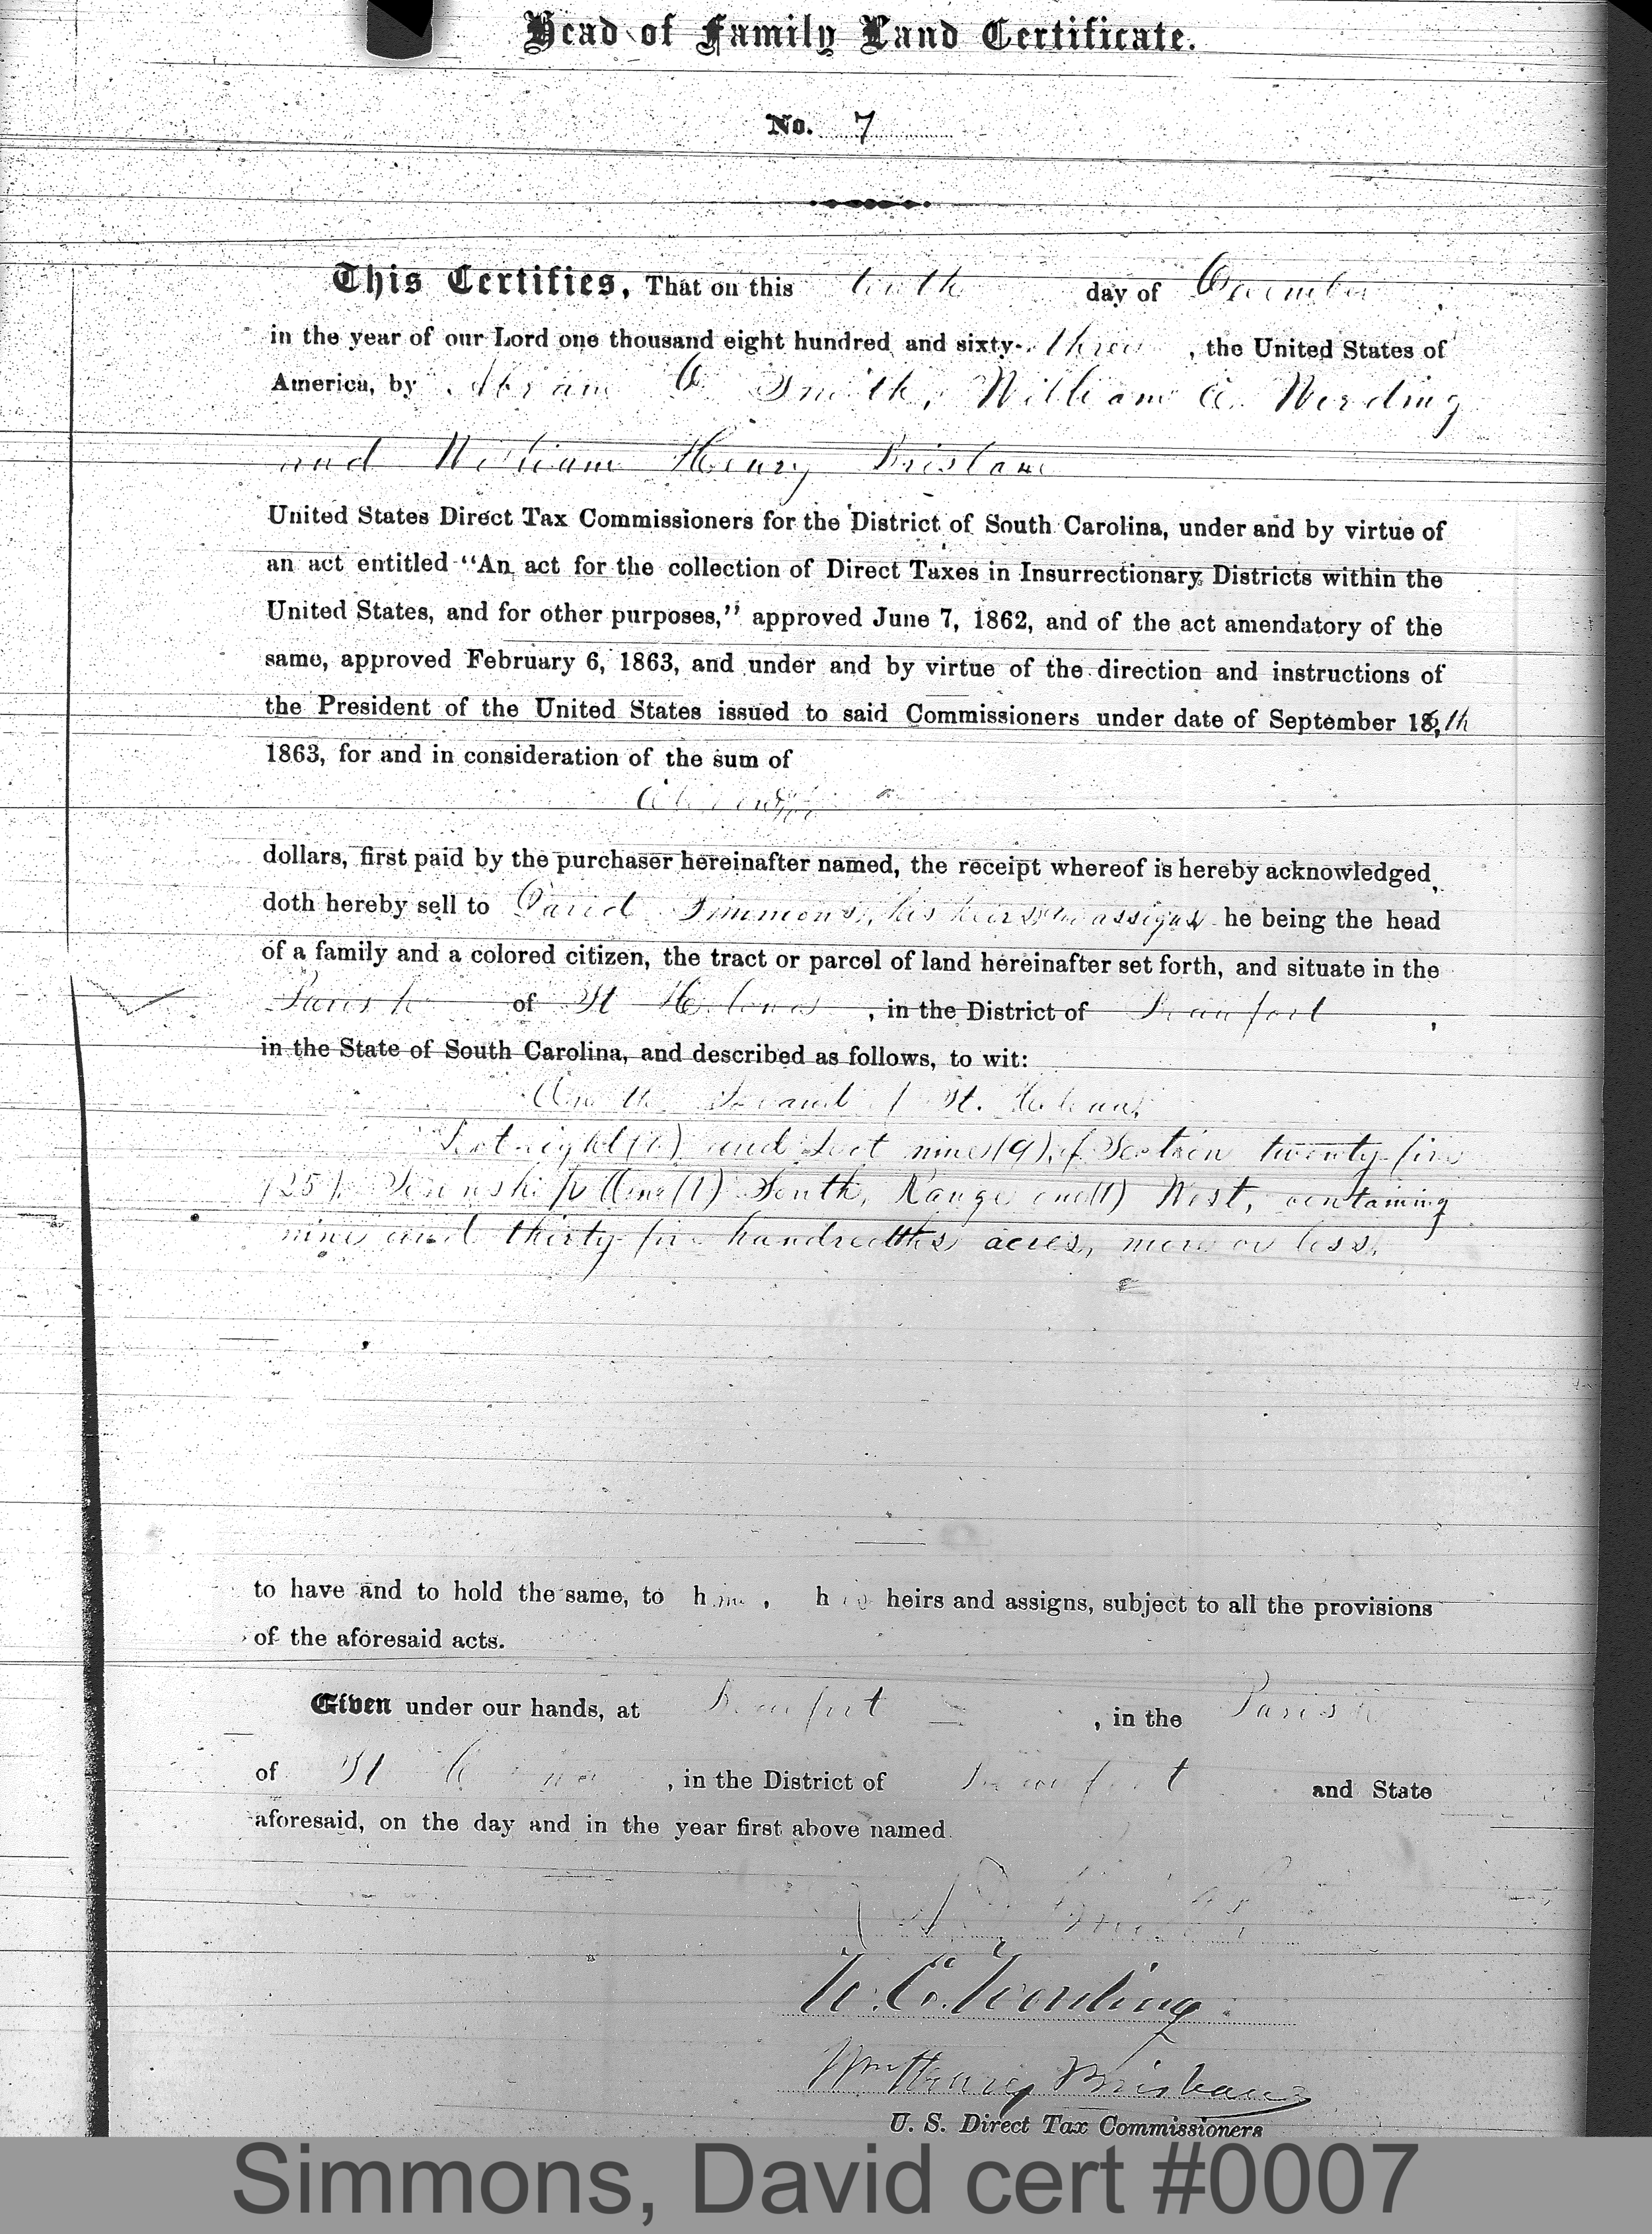 Head of Family Land Certificate.
No. 7
This Certifies, That on this tenth day of December,
in the year of our Lord one thousand eight hundred and sixty-three, the United States of
America, by Abram D. Smith, William E. Wording
and William Henry Brisbane
United States Direct Tax Commissioners for the District of South Carolina, under and by virtue of
an act entitled "An act for the collection of Direct Taxes in Insurrectionary Districts within the
United States, and for other purposes," approved June 7, 1862, and of the act amendatory of the
same, approved February 6, 1863, and under and by virtue of the direction and instructions of
the President of the United States issued to said Commissioners under date of September 16, th
1863, for and in consideration of the sum of
dollars, first paid by the purchaser hereinafter named, the receipt whereof is hereby acknowledged,
doth hereby sell to David Simmons, his heirs assigns he being the head
of a family and a colored citizen, the tract or parcel of land hereinafter set forth, and situate in the
Parish of St Helena, in the District of Beaufort,
in the State of South Carolina, and described as follows, to wit:
On the Island of St. Helena,
Lot eight (8) and Lot nine (9) of Section twenty five
(25) Township One (1) South, Range one (1) West, containing
nine and thirty five hundredths acres, more or less.
to have and to hold the same, to him, his heirs and assigns, subject to all the provisions
of the aforesaid acts.
Given under our hands, at Beaufort, in the Parish
of St Helena, in the District of Beaufort and State
aforesaid, on the day and in the year first above named.
Smith
W. E. Wording
Wm Henry Brisbane
U. S. Direct Tax Commissioners
Simmons, David cert #0007